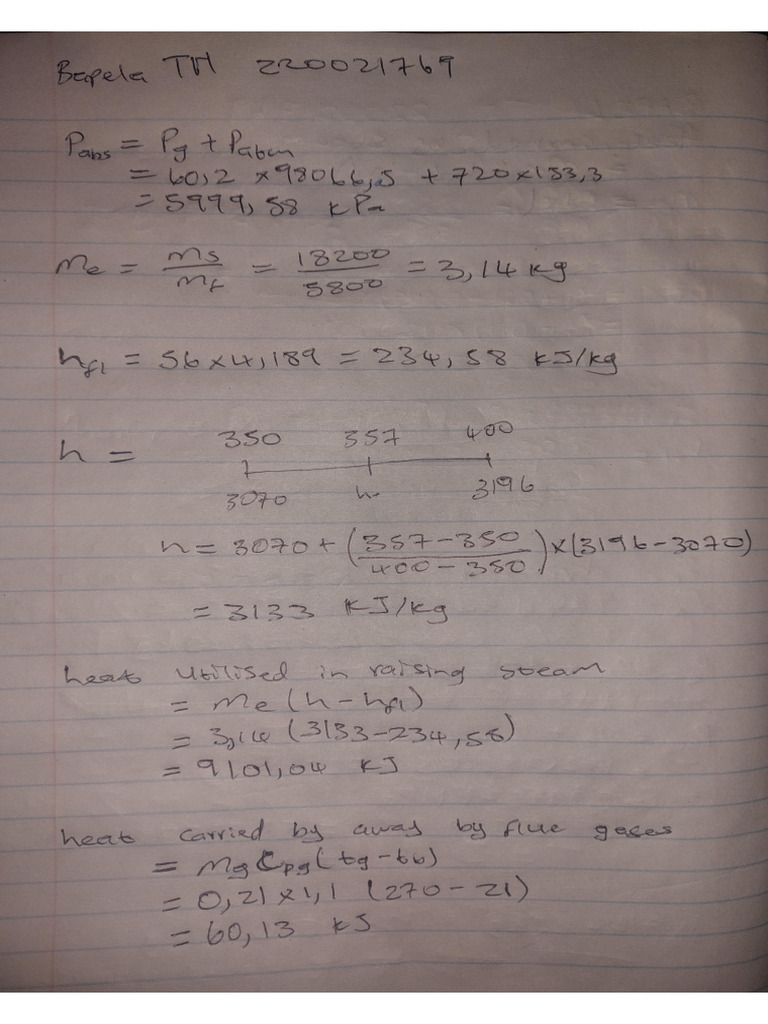 Bapela TH 220021769
Pabs = Pg + Patm
= 60,2 × 98066,5 + 720×133,3
= 5999,58 kPa
Me = Ms/Mf = 18200/5800 = 3,14 kg
hf1 = 56×4,189 = 234,58 kJ/kg
350 357 400
h =
3070 h 3196
h = 3070 + (357-350/400-350) × (3196-3070)
= 3133 kJ/kg
heat utilised in raising steam
= Me (h-hf1)
= 3,14 (3133-234,58)
= 9101,04 kJ
heat carried by away by flue gases
= Mg Cpg (tg-tb)
= 0,21×1,1 (270-21)
= 60,13 kJ